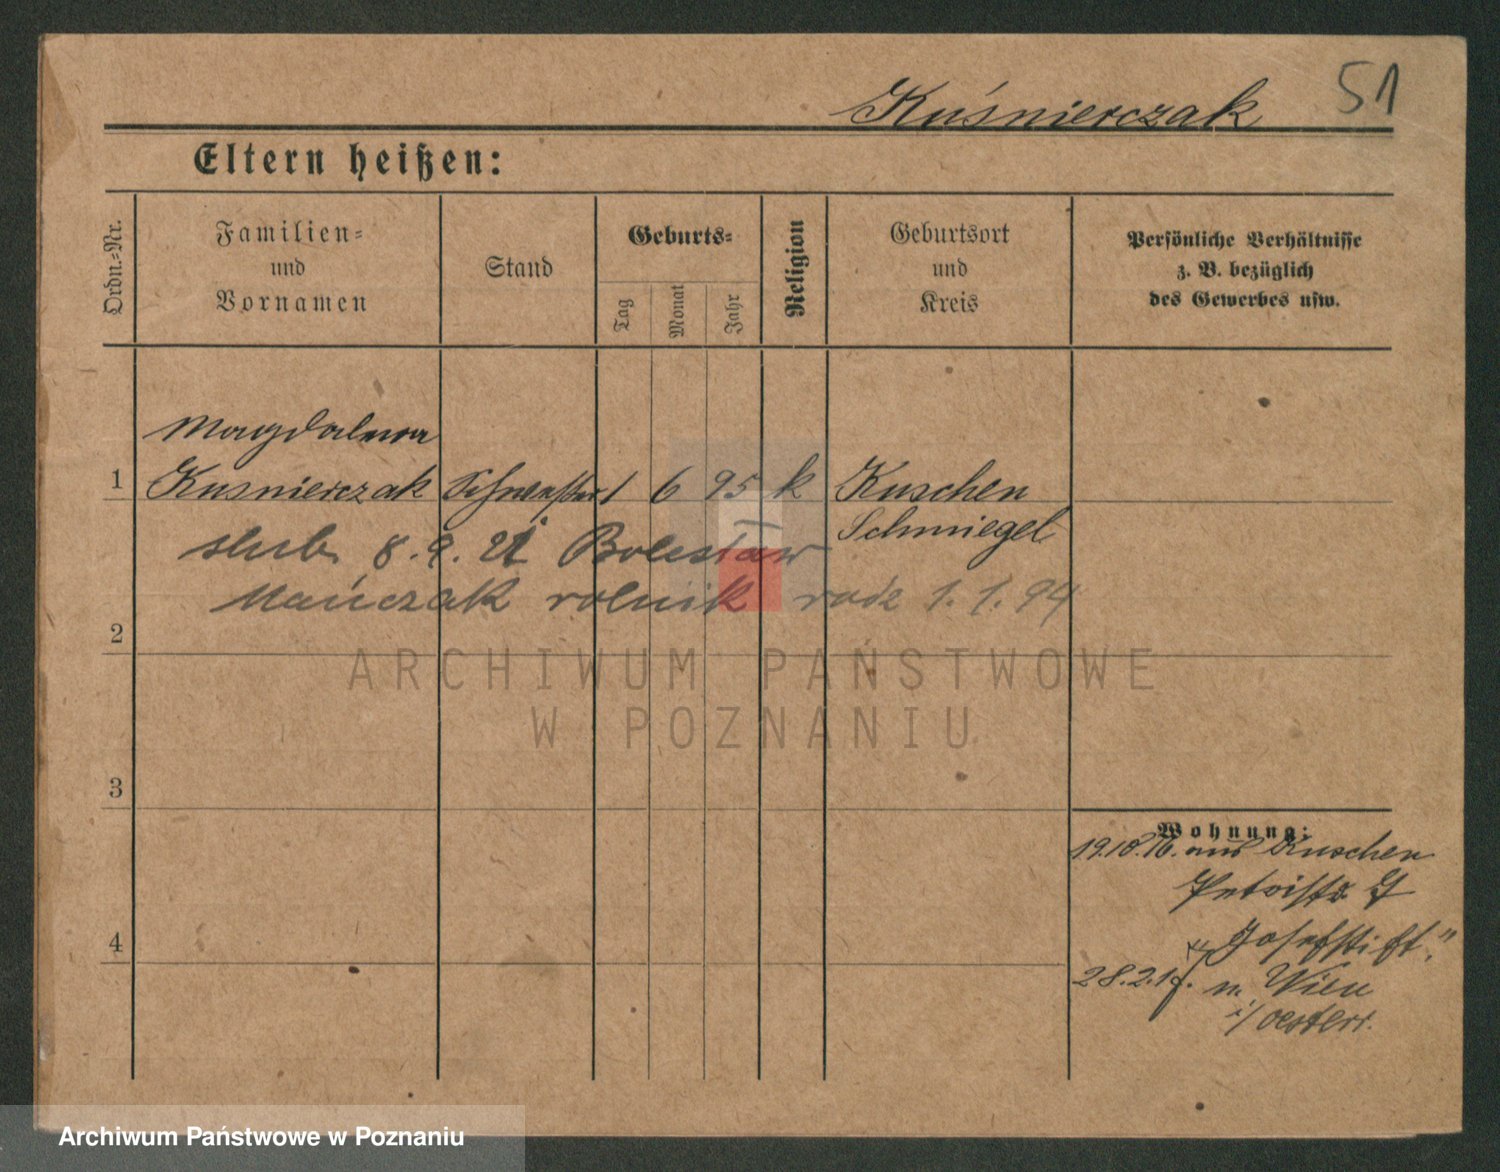 51
Kuśnierczak
Eltern heißen:
Ordn.-Nr.
Familien-
und
Vornamen
Stand
Geburts-
Tag
Monat
Jahr
Religion
Geburtsort
und
Kreis
Persönliche Verhältnisse
z. B. bezüglich
des Gewerbes usw.
Magdalena
1 Kusnierczak Schwester 1 6 95 k Kuschen
Schmiegel
slub 8.9.21 Bolesław
Mańczak rolnik rodz 1.1.94
2
ARCHIWUM PAŃSTWOWE
W POZNANIU
3
Wohnung:
19.10.16. aus Kuschen
Petristr
Josefstift."
4
28.2. n. Wien
i/oesterr.
Archiwum Państwowe w Poznaniu